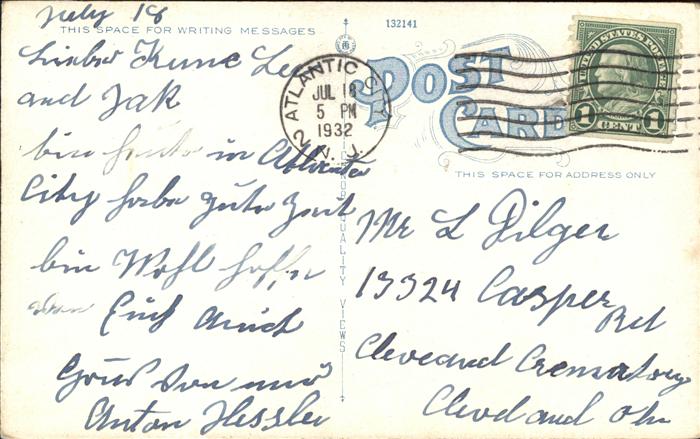 July 18
THIS SPACE FOR WRITING MESSAGES
132141
Lieber
and Jak
bin heute in Atlantic
City habe gute Zeit
bin Wohl hoffe
von Euch auch
Gruss von mir
Anton Hessler
ATLANTIC CITY
JUL 18
5 PM
1932
N. J.
2
POST
CARD
UNITED STATES POSTAGE
1 CENT 1
THIS SPACE FOR ADDRESS ONLY
QUALITY VIEWS
Mr L Pilger
13324 Casper
Rd
Cleveland
Cleveland Oh